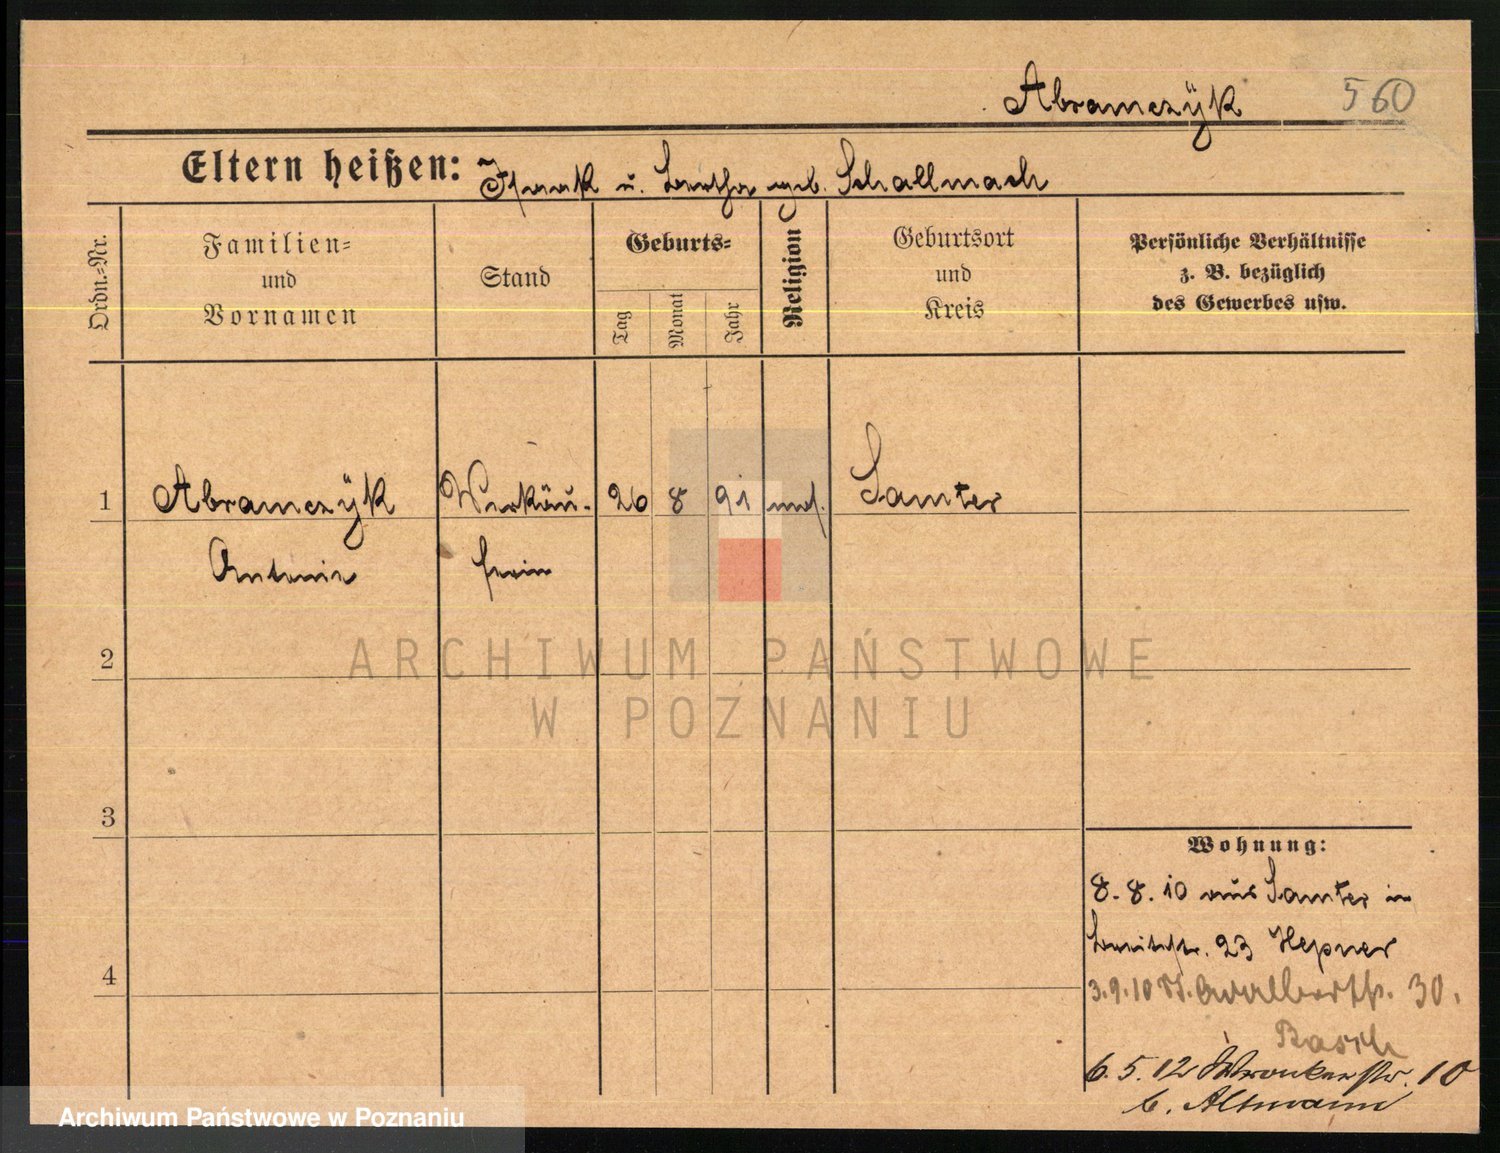 Abramczÿk 560
Eltern heißen: Isaak u. Bertha geb. Schallmach
Ordn.-Nr.
Familien-
und
Vornamen
Stand
Geburts-
Tag
Monat
Jahr
Religion
Geburtsort
und
Kreis
Persönliche Verhältnisse
z. B. bezüglich
des Gewerbes usw.
1 Abramczÿk Verkäu- 26 8 91 mos. Samter
Antonie ferin
2
ARCHIWUM PAŃSTWOWE
W POZNANIU
3
Wohnung:
8.8.10 aus Samter in
Breitestr. 23 Hepner
4
3.9.10 St. Adalbertstr. 30.
Basch
6.5.12 Wronkerstr. 10
b. Altmann
Archiwum Państwowe w Poznaniu